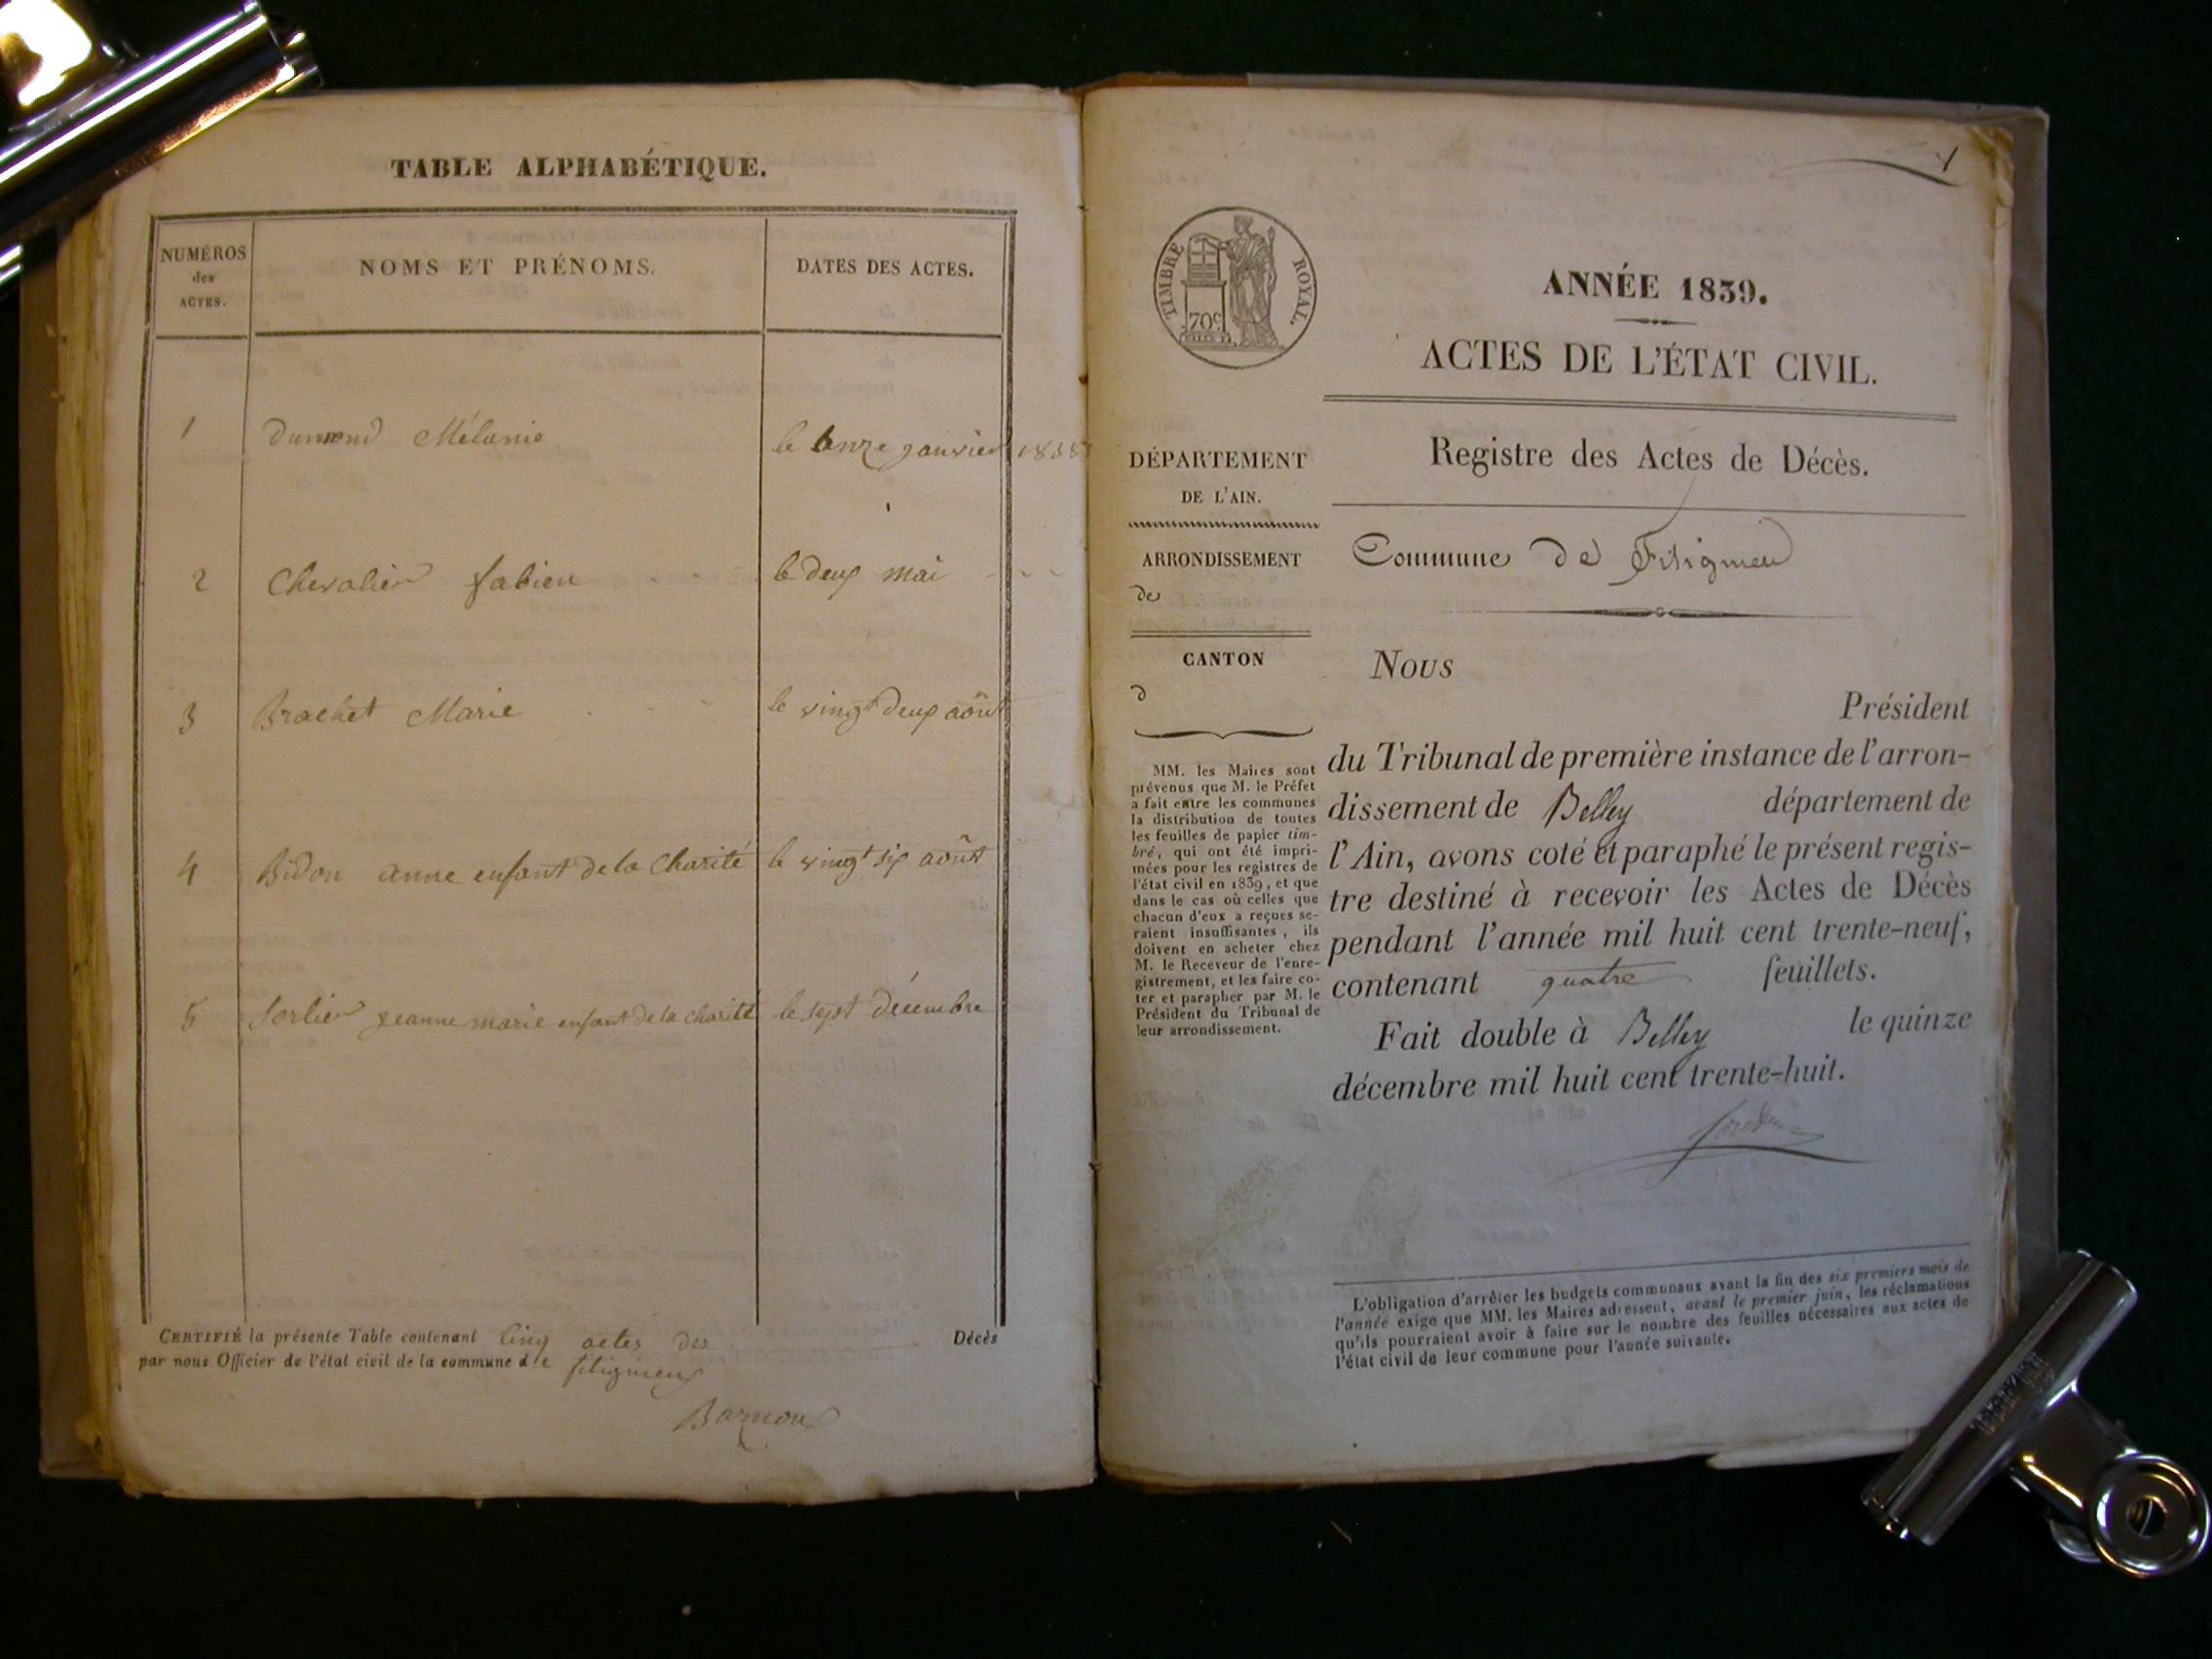 TABLE ALPHABÉTIQUE.
NUMÉROS
des
ACTES.
NOMS ET PRÉNOMS.
DATES DES ACTES.
1 Dumond Mélanie le onze janvier 1838
2 Chevalier fabien le deux mai
3 Brachet Marie le vingt deux août
4 Bidon anne enfant de la Charité le vingt six août
5 Sorlier jeanne marie enfant de la charité le sept décembre
CERTIFIÉ la présente Table contenant Cinq actes des Décès
par nous Officier de l'état civil de la commune de filignieux
1
TIMBRE ROYAL.
70c
ANNÉE 1839.
ACTES DE L'ÉTAT CIVIL.
Registre des Actes de Décès.
DÉPARTEMENT
DE L'AIN.
ARRONDISSEMENT
de
CANTON
d
MM. les Maires sont
prévenus que M. le Préfet
a fait entre les communes
la distribution de toutes
les feuilles de papier tim-
bré, qui ont été impri-
mées pour les registres de
l'état civil en 1839, et que
dans le cas où celles que
chacun d'eux a reçues se-
raient insuffisantes, ils
doivent en acheter chez
M. le Receveur de l'enre-
gistrement, et les faire co-
ter et parapher par M. le
Président du Tribunal de
leur arrondissement.
Commune de Filignieu
Nous
Président
du Tribunal de première instance de l'arron-
dissement de Belley département de
l'Ain, avons coté et paraphé le présent regis-
tre destiné à recevoir les Actes de Décès
pendant l'année mil huit cent trente-neuf,
contenant quatre feuillets.
Fait double à Belley le quinze
décembre mil huit cent trente-huit.
L'obligation d'arrêter les budgets communaux avant la fin des six premiers mois de
l'année exige que MM. les Maires adressent, avant le premier juin, les réclamations
qu'ils pourraient avoir à faire sur le nombre des feuilles nécessaires aux actes de
l'état civil de leur commune pour l'année suivante.